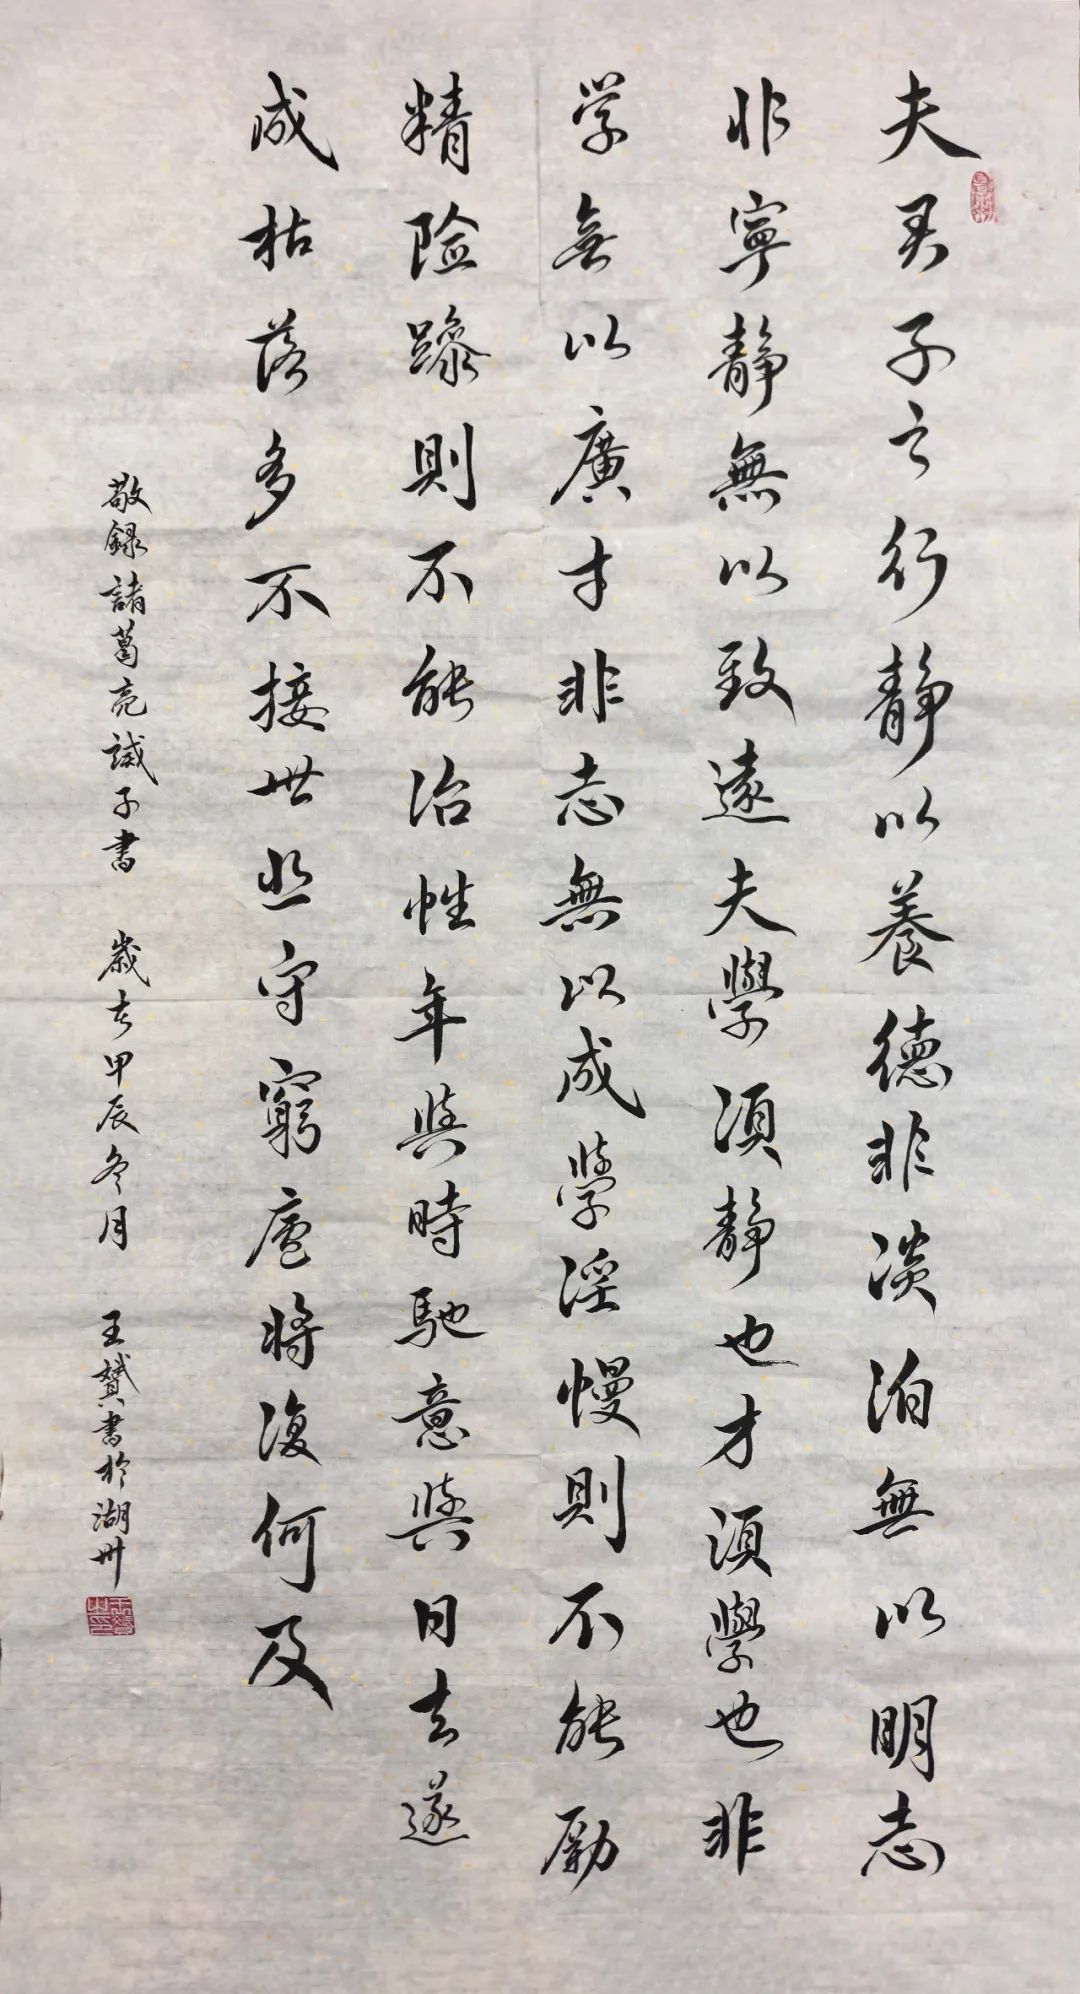 夫君子之行静以養德非淡泊無以明志
非寧静無以致遠夫學須静也才須學也非
学無以廣才非志無以成學淫慢則不能勵
精险躁則不能治性年與時馳意與日去遂
成枯落多不接世悲守窮廬將復何及
敬録諸葛亮誡子書 歲在甲辰冬月 王贇書於湖州